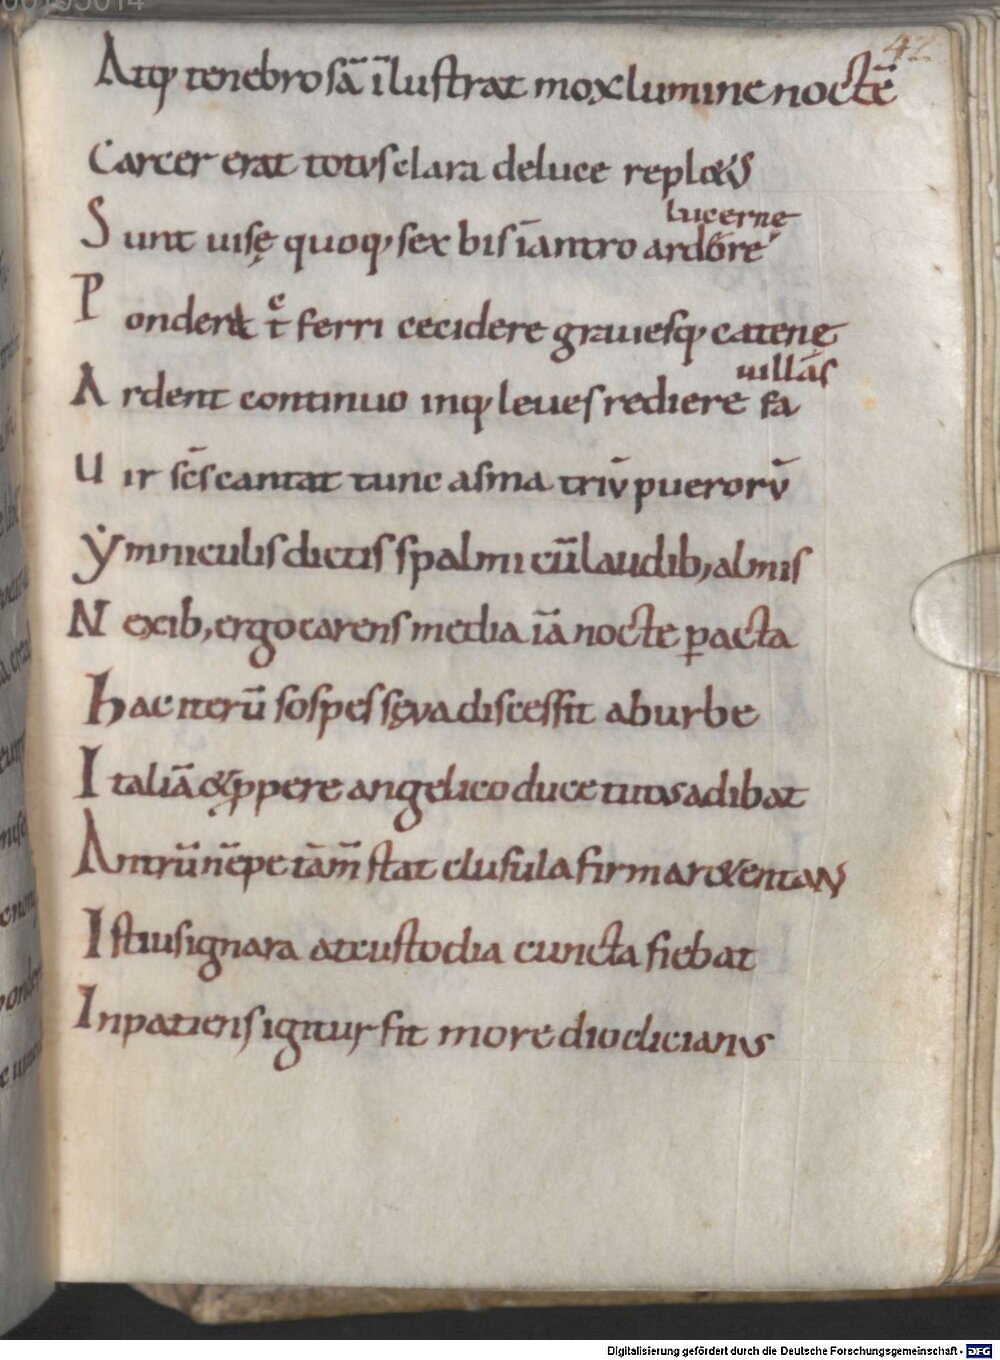 00105014
42
Atq; tenebrosā īlustrat mox lumine noctē
Carcer erat totus clara de luce repl&us
lucerne
Sunt uisę quoq; sex bis iā antro ardore
Ponder& t ferri cecidere grauesq; catene
uillas
Ardent continuo inq; leues rediere fa
Uir sc̄s cantat tunc asma triū puerorū
ẏmniculis dictis spalmi cū laudib; almis
Nexib; ergo carens media iā nocte ꝑacta
hac iterū sospes sęva discessit ab urbe
Italiā & ꝓpere angelico duce tutus adibat
Antrū nēpe tam̄ stat clusula firma r&entans
Istius ignara at custodia cuncta fiebat
Inpatiens igitur fit more dioclicianus
Digitalisierung gefördert durch die Deutsche Forschungsgemeinschaft - DFG